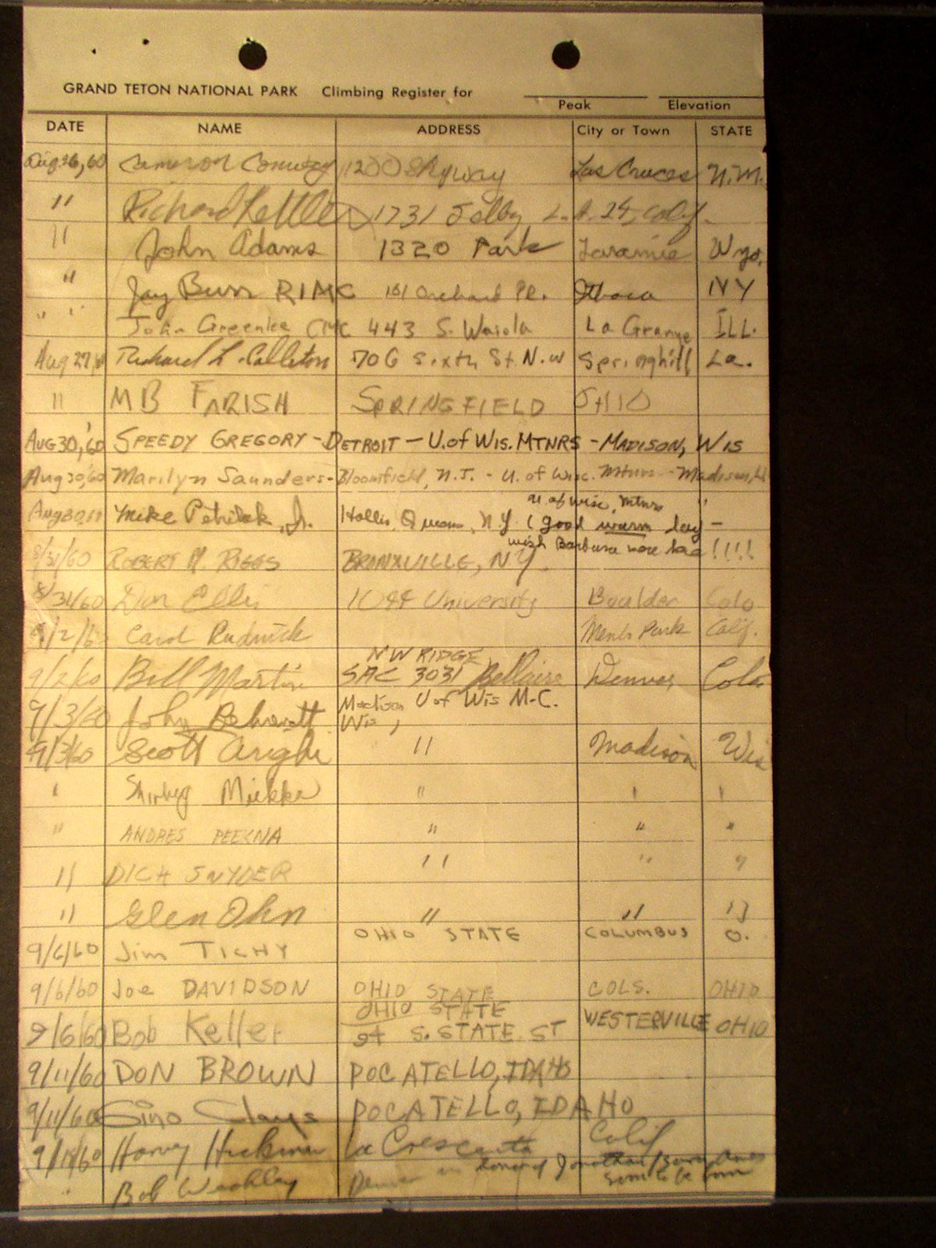 GRAND TETON NATIONAL PARK Climbing Register for
Peak Elevation
DATE NAME ADDRESS City or Town STATE
Aug 26, 60 Cameron 1200 Skyway Las Cruces N.M.
" Richard 1731 Selby L.A. 24, Calif.
" John Adams 1320 Park Laramie Wyo.
" Jay Burr RIMC 101 Orchard Pl. Ithaca NY
" " John Greenlee CMC 443 S. Waiola La Grange ILL.
Aug 27, Richard L. 706 Sixth St. N.W Springhill La.
" MB FARISH SPRINGFIELD OHIO
AUG 30, '60 SPEEDY GREGORY - DETROIT - U. of WIS. MTNRS - MADISON, WIS
Aug 30, '60 Marilyn Saunders - Bloomfield, N.J. - U. of Wisc. Mtnrs - Madison,
u. of wisc. mtnrs "
Aug 30, Mike Jr. Hollis, Queens, N.Y. (good warm day -
wish Barbara were here!!!!
8/31/60 ROBERT M. RIGGS BRONXVILLE, NY.
8/31/60 Don Ellis 1044 University Boulder Colo
9/2/60 Carol Rudnick Menlo Park Calif.
NW RIDGE
9/2/60 Bill Martin SAC 3031 Bellaire Denver Colo
9/3/60 John Madison U of Wis M.C.
Wis,
9/3/60 Scott Arighi " Madison Wis
" Shirley " " "
" ANDRES PEEKNA " " "
" DICK SNYDER " " "
" Glen " " "
OHIO STATE COLUMBUS O.
9/6/60 Jim TICHY
9/6/60 Joe DAVIDSON OHIO STATE COLS. OHIO
OHIO STATE
9/6/60 Bob Keller S. STATE ST WESTERVILLE OHIO
9/11/60 DON BROWN POCATELLO, IDAHO
9/11/60 Gino Clays POCATELLO, IDAHO
9/18/60 Harvey Hickman La Crescenta Calif
in honor of Jonathan
soon to be born
Bob Denver